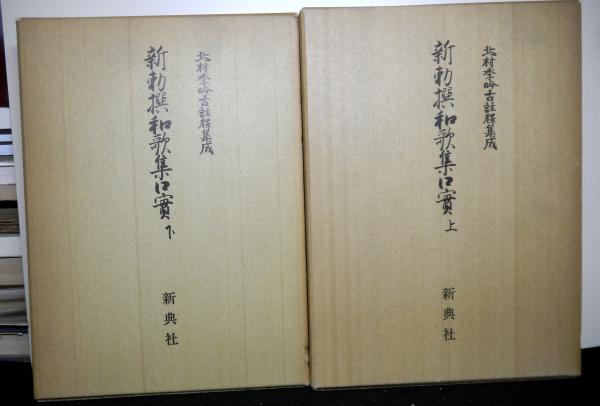 北村季吟古註釋集成
新勅撰和歌集口實 上
新典社
北村季吟古註釋集成
新勅撰和歌集口實 下
新典社